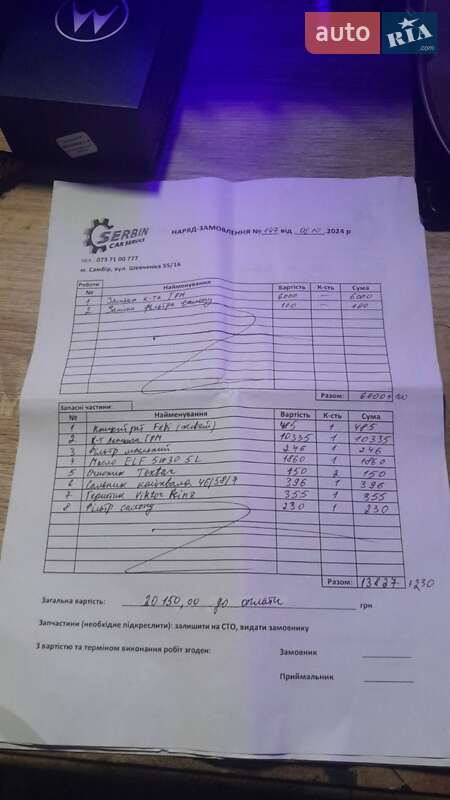 auto RIA .com
SERBIN
CAR SERVICE
НАРЯД-ЗАМОВЛЕННЯ № 147 від 05.10 2024 р
тел. 073 71 00 777
м. Самбір, вул. Шевченка 55/16
Роботи
№ Найменування Вартість К-сть Сума
1 Заміна к-та ГРМ 6000 — 6000
2 Заміна фільтра салону 100 — 100
Разом: 6000+100
Запасні частини:
№ Найменування Вартість К-сть Сума
1 Febi 485 1 485
2 К-т ГРМ 10335 1 10335
3 Фільтр масляний 246 1 246
4 Масло ELF 5W30 5L 1860 1 1860
5 150 2 150
6 Сальник 46/58/7 396 1 396
7 Герметик Viktor Reinz 355 1 355
8 Фільтр салону 230 1 230
Разом: 13827 +230
Загальна вартість: 20 150,00 до оплати грн
Запчастини (необхідне підкреслити): залишити на СТО, видати замовнику
З вартістю та терміном виконання робіт згоден: Замовник
Приймальник